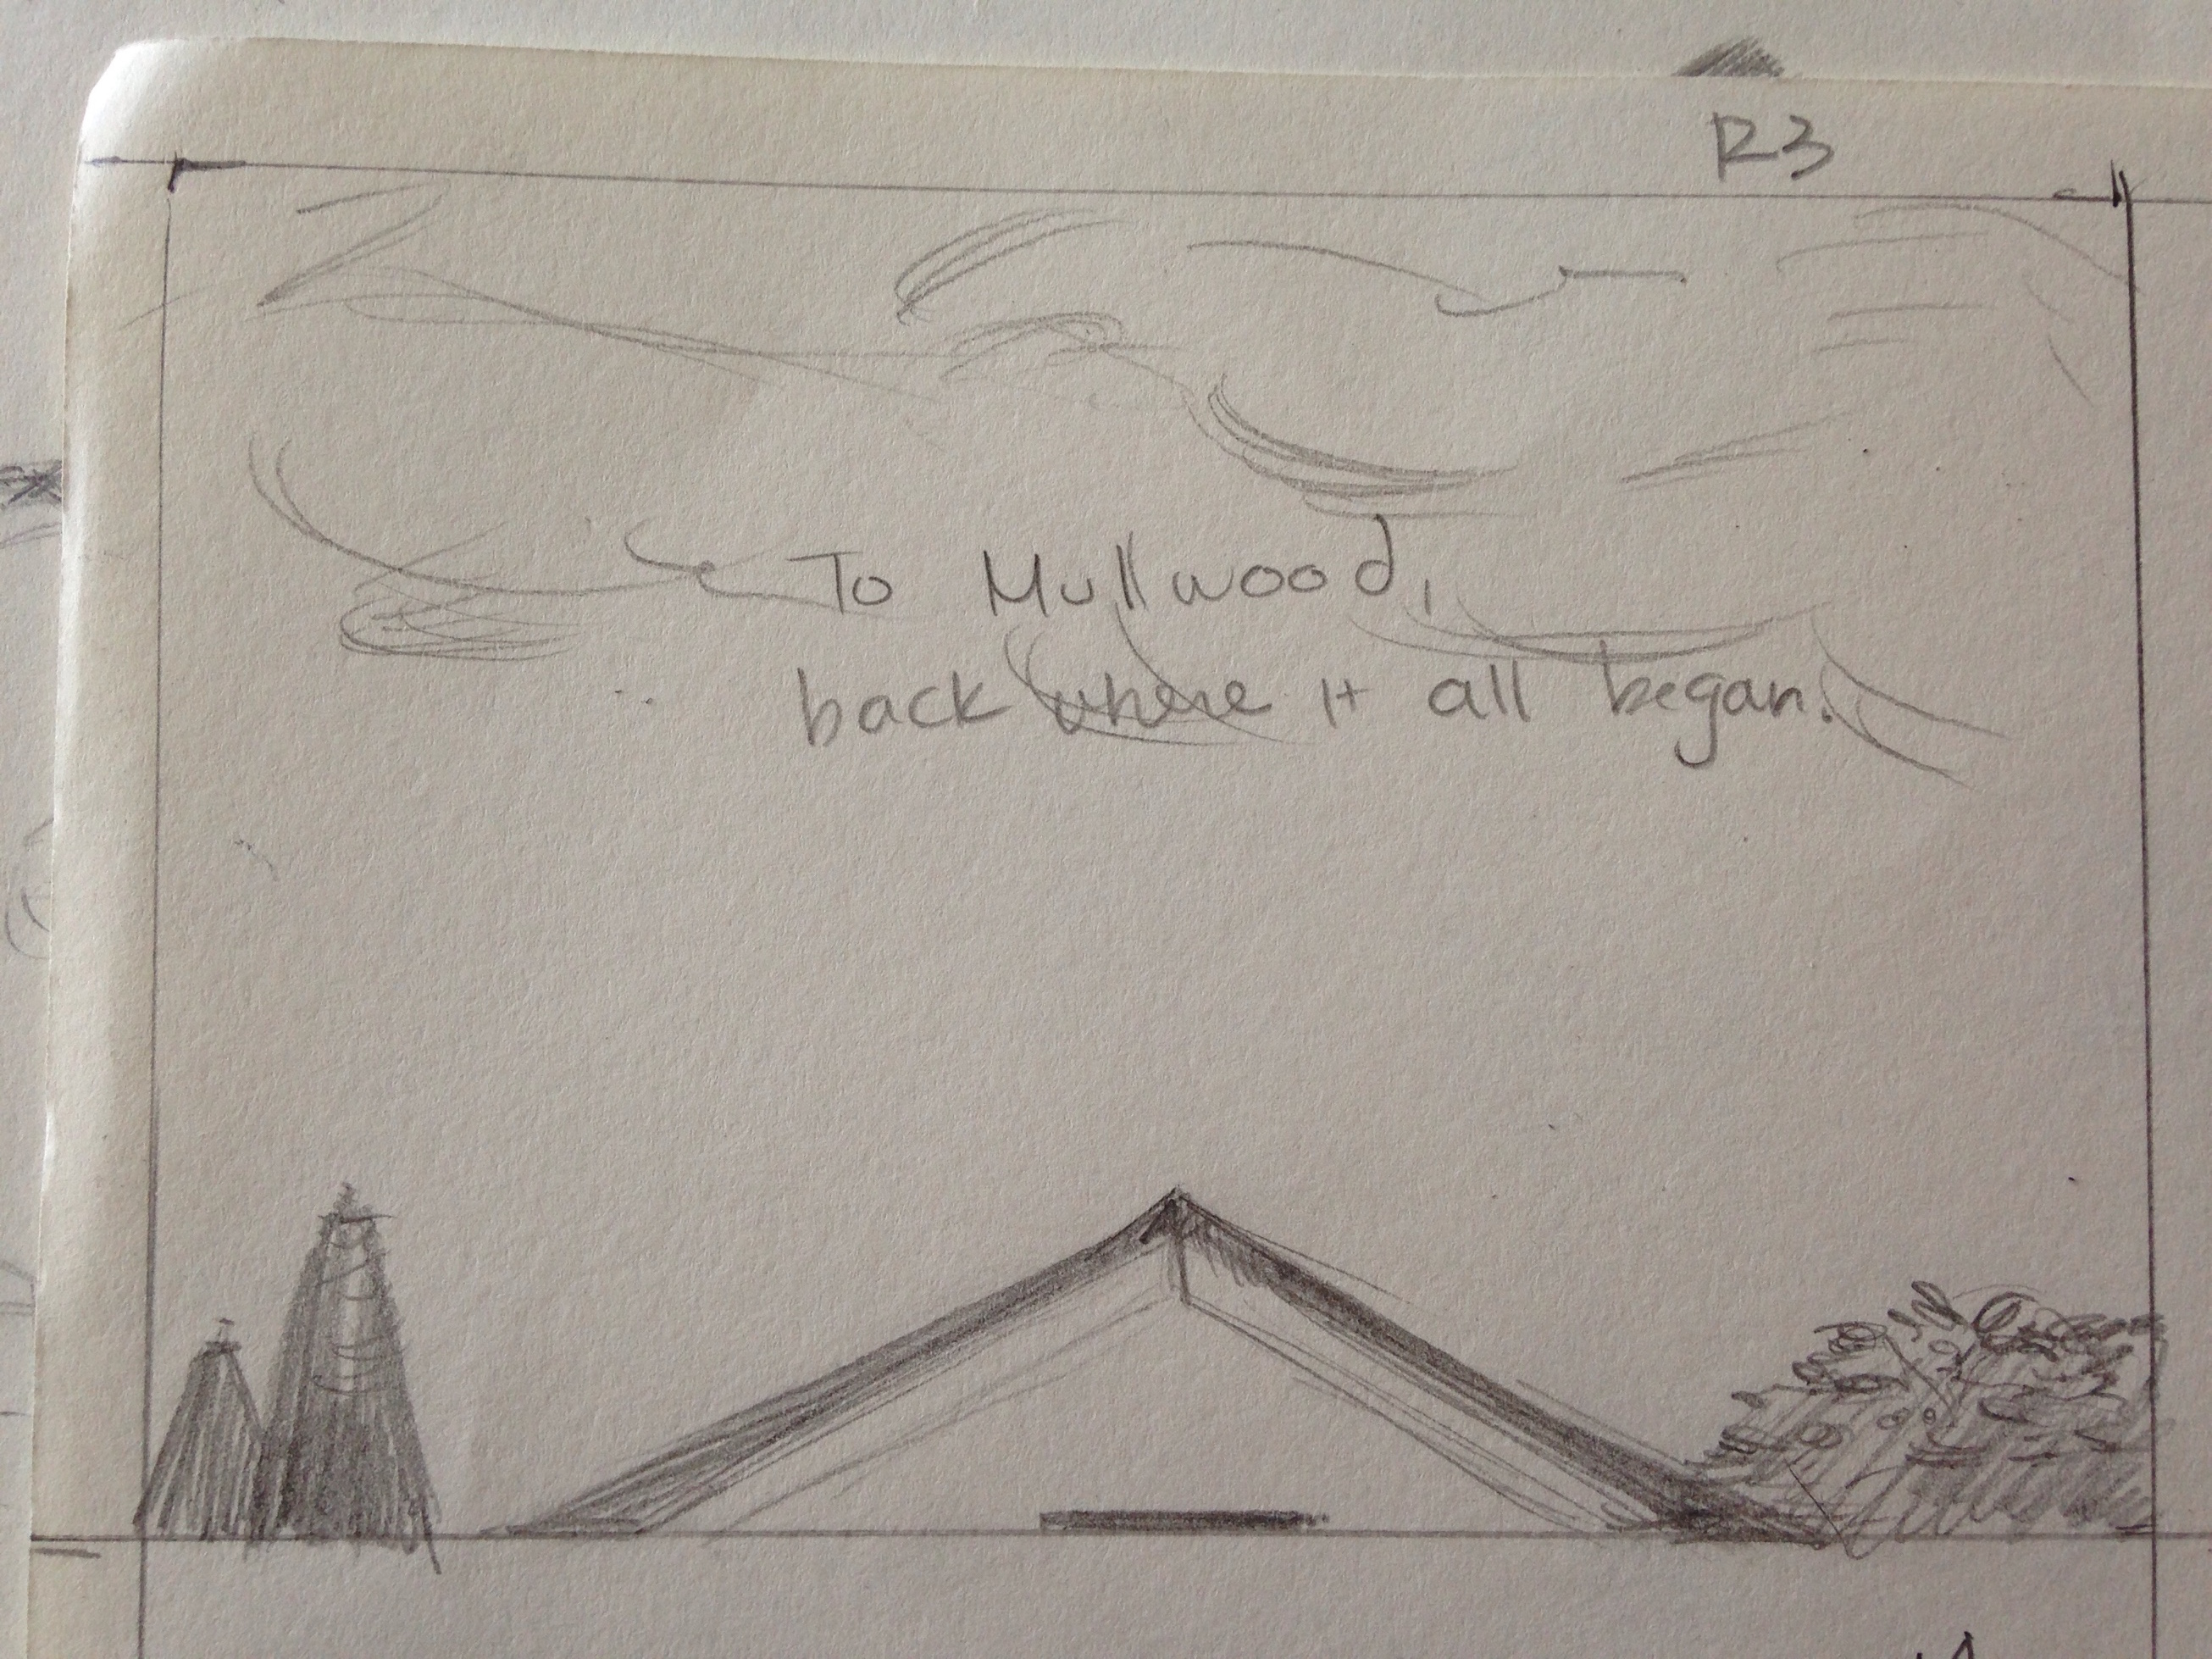 R3
To Mullwood,
back where it all began.